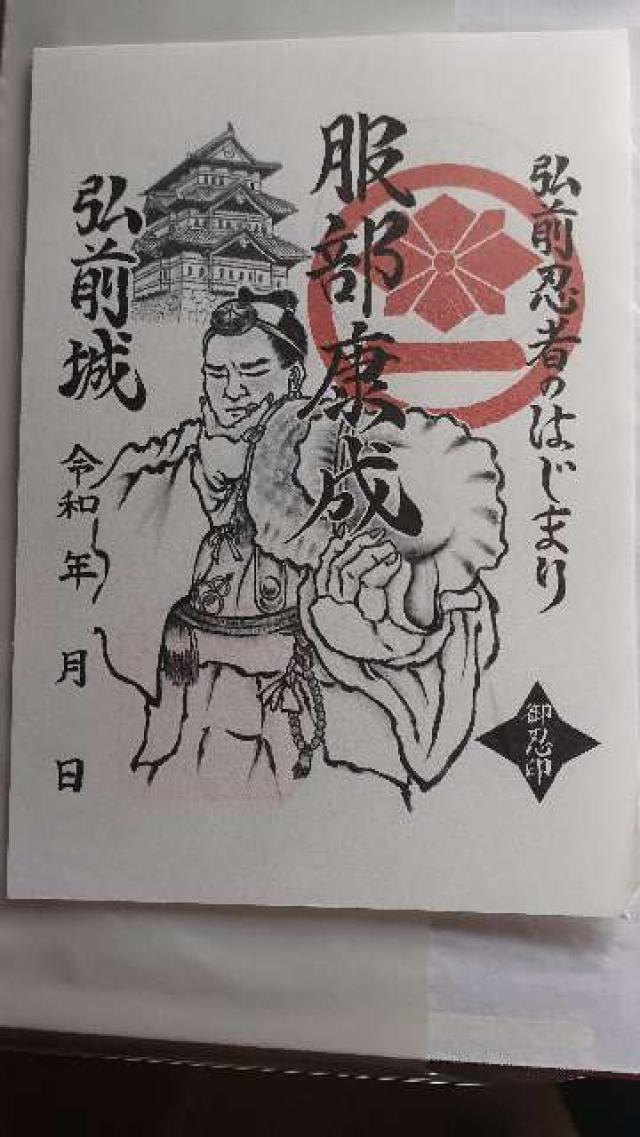 弘前忍者のはじまり
服部康成
弘前城
令和 年 月 日
御忍印